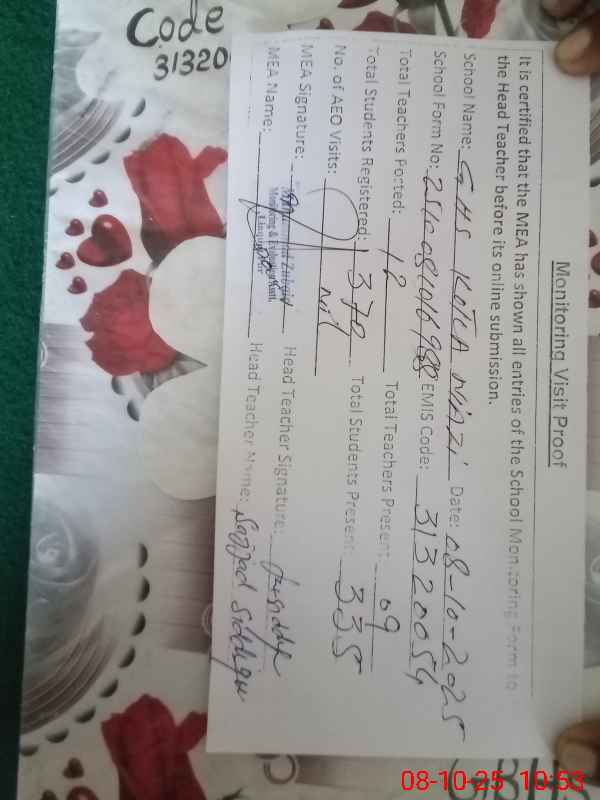 Code
31320
Monitoring Visit Proof
It is certified that the MEA has shown all entries of the School Monitoring Form to
the Head Teacher before its online submission.
School Name: GHS KOTLA NIAZI Date: 08-10-2025
School Form No: EMIS Code: 31320054
Total Teachers Posted: 12 Total Teachers Present: 09
Total Students Registered: 379 Total Students Present: 335
No. of AEO Visits: Nil
MEA Signature: Head Teacher Signature:
MEA Name: Head Teacher Name: Sajjad Siddiqui
Monitoring & Evaluation
08-10-25 10:53